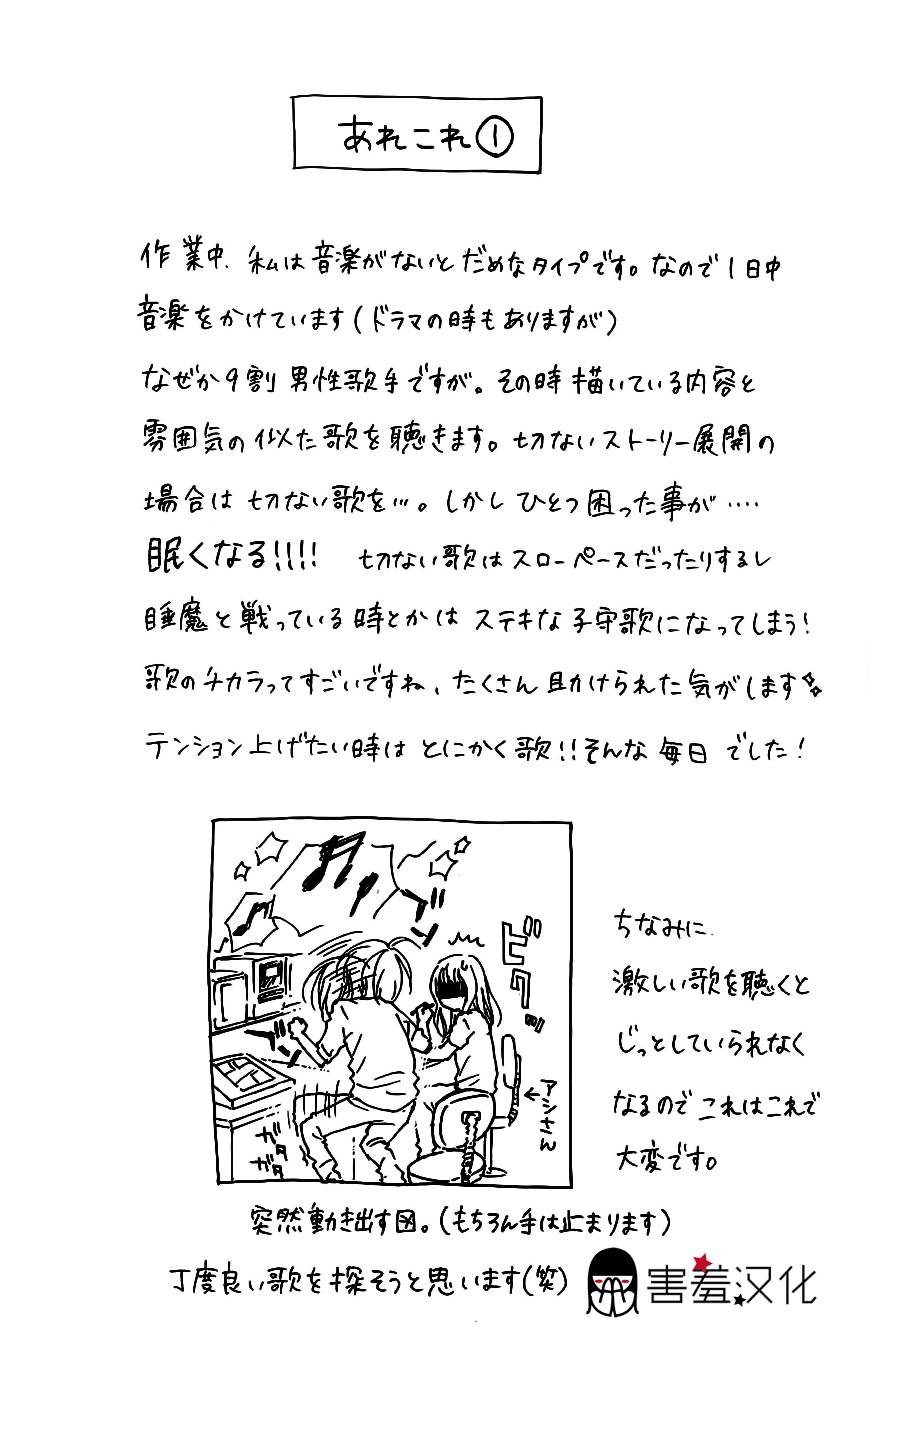 あれこれ①
作業中、私は音楽がないとだめなタイプです。なので1日中
音楽をかけています(ドラマの時もありますが)
なぜか9割男性歌手ですが。その時描いている内容と
雰囲気の似た歌を聴きます。切ないストーリー展開の
場合は切ない歌を…。しかしひとつ困った事が‥‥
眠くなる!!!! 切ない歌はスローペースだったりするし
睡魔と戦っている時とかはステキな子守歌になってしまう!
歌のチカラってすごいですね、たくさん助けられた気がします
テンション上げたい時はとにかく歌!!そんな毎日でした!
ブン
ビクッ
ブン
ガタ
ガタ
←アシさん
ちなみに、
激しい歌を聴くと
じっとしていられなく
なるのでこれはこれで
大変です。
突然動き出す図。(もちろん手は止まります)
丁度良い歌を探そうと思います(笑)
害羞汉化